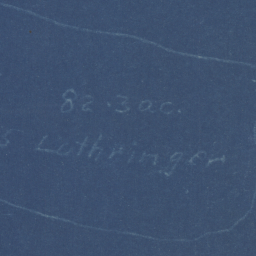 82.3 ac.
S Luthringer